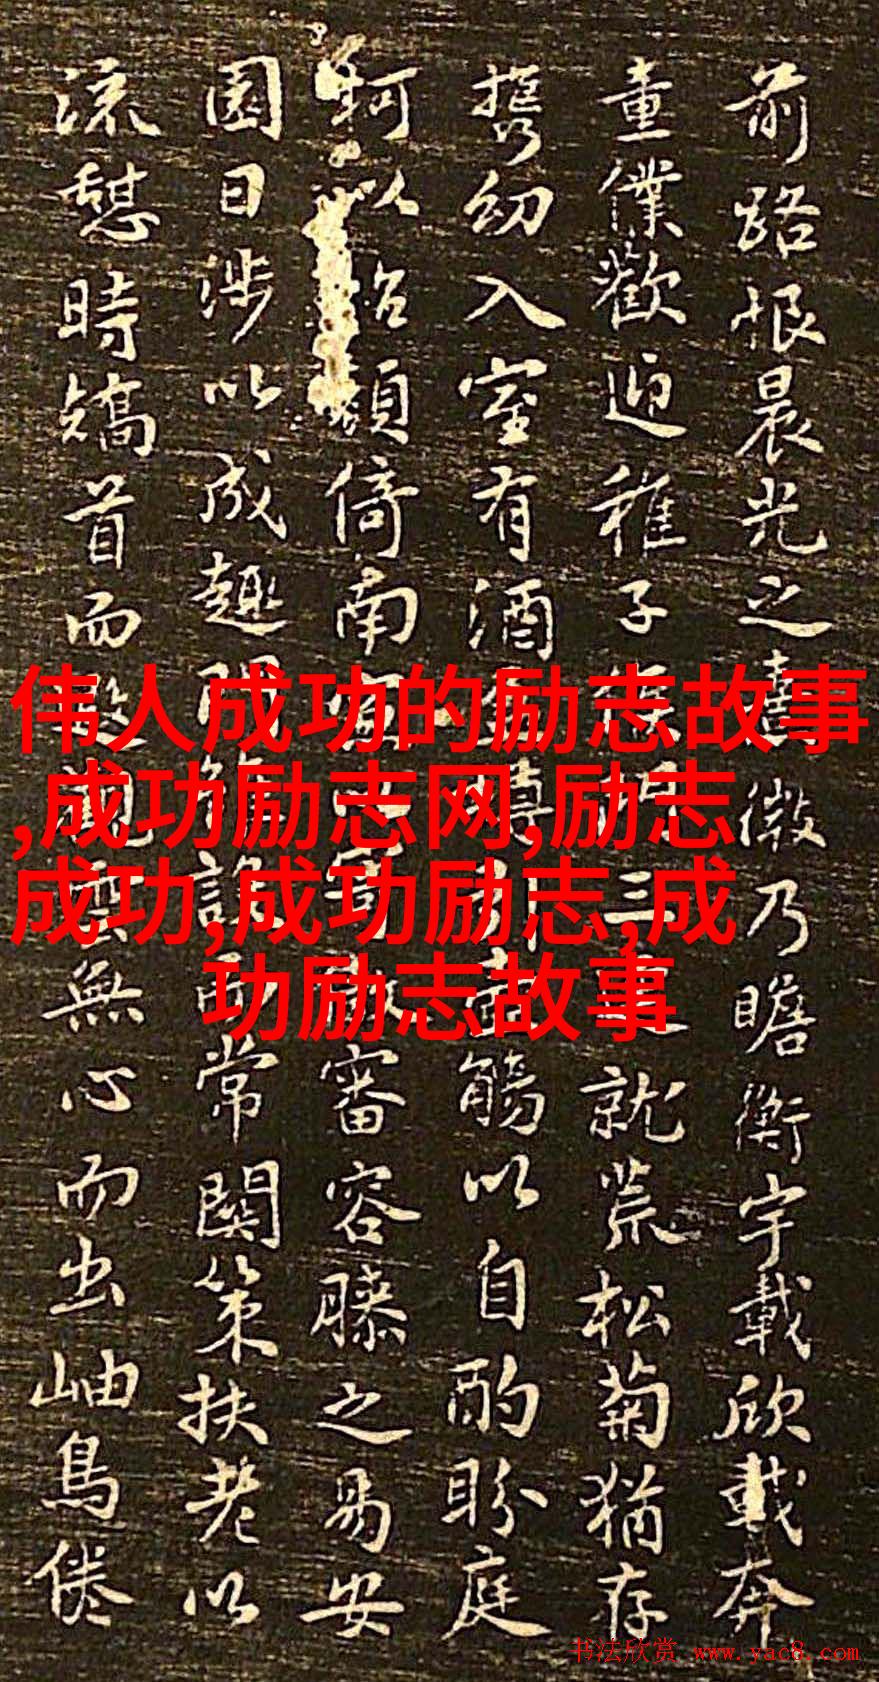 前路恨晨光之熹微乃瞻衡宇載欣載奔
童僕歡迎稚子候三逕就荒松菊猶存
携幼入室有酒盈樽引壺觴以自酌眄庭
柯以怡顏倚南窗以寄傲審容膝之易安
園日涉以成趣門雖設而常關策扶老以
流憩時矯首而遐觀雲無心而出岫鳥倦
伟人成功的励志故事
,成功励志网,励志
成功,成功励志,成
功励志故事
书法欣赏 www.yac8.com